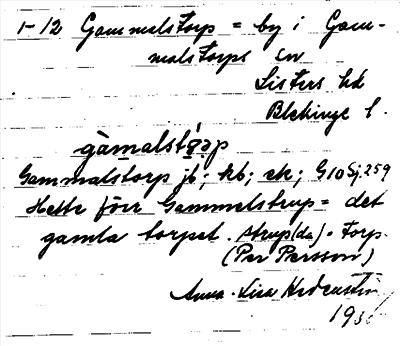 1-12 Gammalstorp = by i Gam-
malstorps sn
Listers hd
Blekinge l.
gàmalstǫrp
Gammalstorp jb; kb; ek; G10 Sj. 259
Hette förr Gammelstrup = det
gamla torpet. strup (da) = Torp.
(Per Persson)
Anna-Lisa